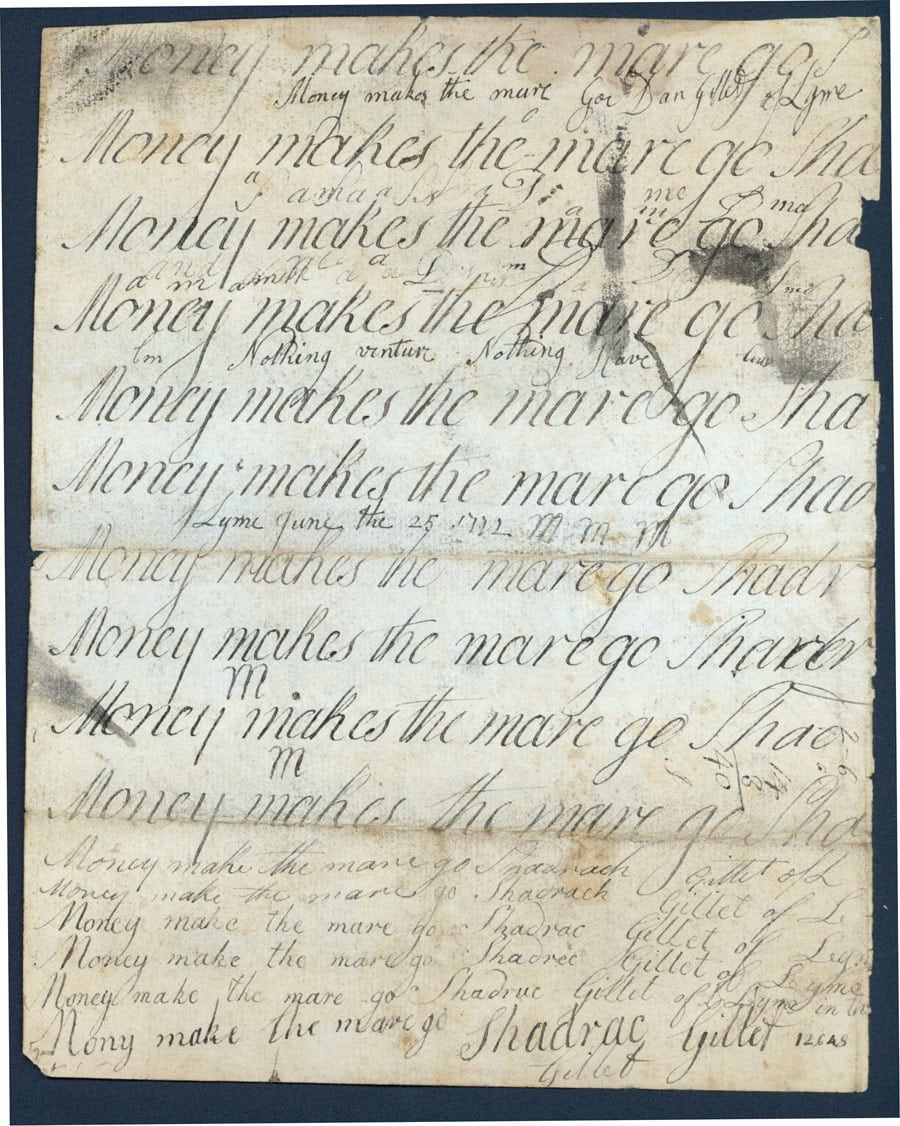 Money makes the mare go S
Money makes the mare Goe Dan Gillet of Lyme
Money makes the mare go Sha
Money makes the mare go Sha
Money makes the mare go Sha
Nothing venture Nothing Have
Money makes the mare go Sha
Money makes the mare go Shad
Lyme June the 25 m m m
Money makes he mare go Shadr
Money makes the mare go Shader
m
Money makes the mare go Shad
m
Money makes the mare go Sha
Money make the mare go Shadrach Gillet of L
Money make the mare go Shadrach Gillet of Le
Money make the mare go Shadrac Gillet of
Money make the mare go Shadrec Gillet of Leyme
Money make the mare go Shadrac Gillet of Lyme in
Nony make the mare go Shadrac Gillet
Gillet